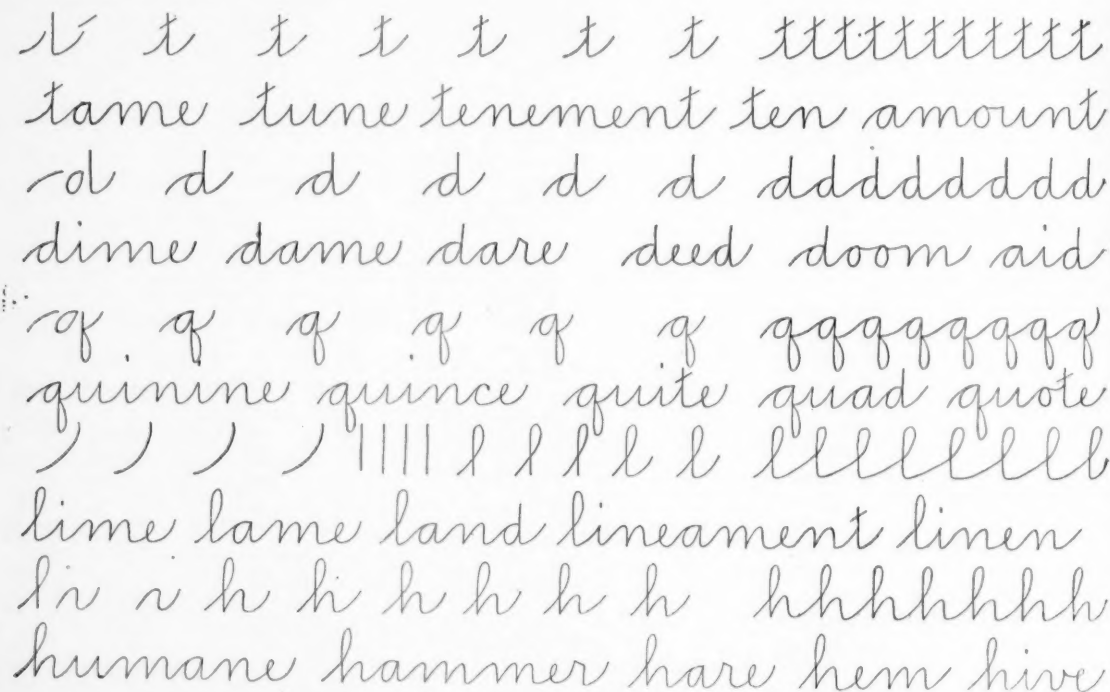 t t t t t t t tttttttttttt
tame tune tenement ten amount
d d d d d d ddddddddd
dime dame dare deed doom aid
q q q q q q qqqqqqqq
quinine quince quite quad quote
l l l l l lllllllll
lime lame land lineament linen
h h h h h h hhhhhhhh
humane hammer hare hem hive